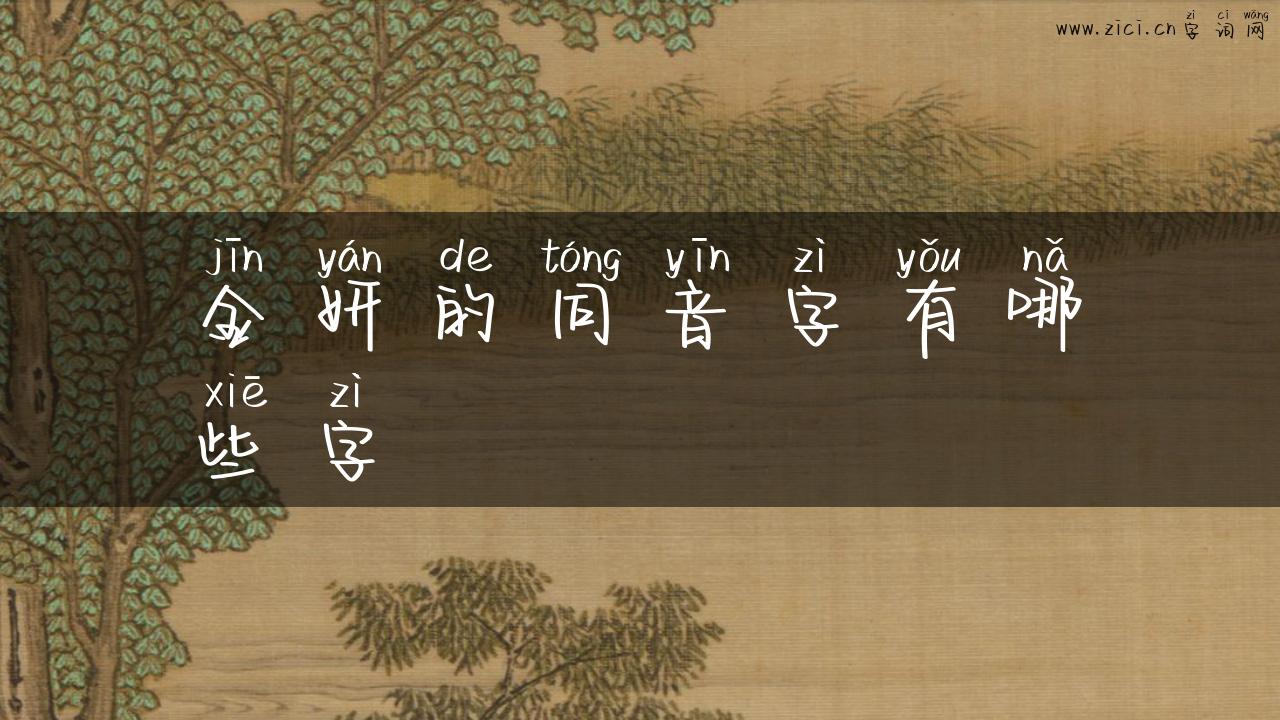 zì cí wǎng
www.zici.cn字词网
jīn yán de tóng yīn zì yǒu nǎ
金妍的同音字有哪
xiē zì
些字